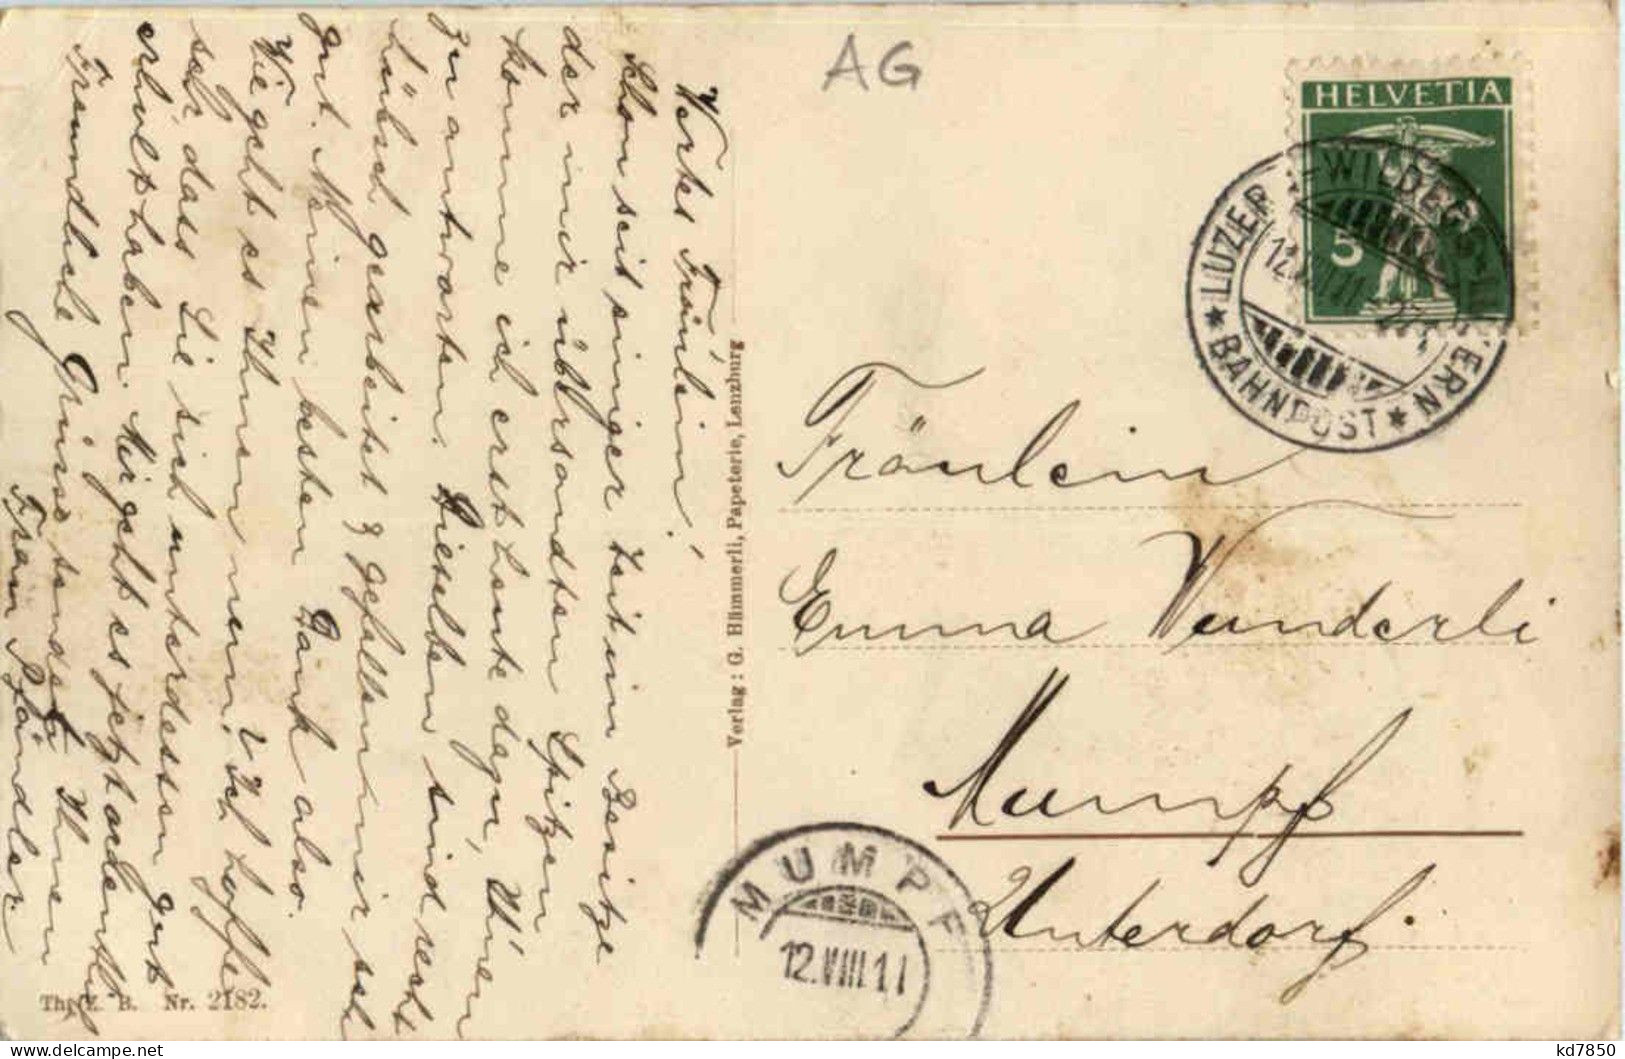 AG
HELVETIA
5
LUZERN-WILDEGG-LUZERN
12.VIII
* BAHNPOST *
Wertes Fräulein!
Schon seit einiger Zeit im Besitze
der mir übersandten Spitzen
komme ich erst heute dazu, Ihnen
zu antworten. Dieselben sind recht
hübsch gearbeitet & gefallen mir sehr
gut. Meinen besten Dank also.
Wie geht es Ihnen nun? Ich hoffe
sehr, dass Sie sich unterdessen gut
erholt haben. Mir geht es jetzt ordentlich
Freundliche Grüsse sendet Ihnen
Frau Pfändler
Verlag: G. Hämmerli, Papeterie, Lenzburg
Fräulein
Emma Wunderli
Mumpf
Unterdorf.
MUMPF
12.VIII.11
Th. Z. B. Nr. 2182.
kd7850